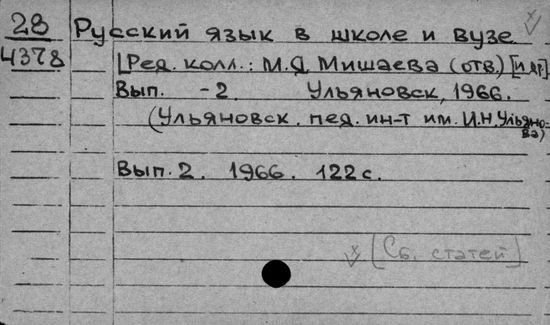 28 Русский язык в школе и вузе
4378 [Ред. колл.: М.Я. Мишаева (отв.) [и др.]
Вып. -2 Ульяновск, 1966.
(Ульяновск. пед. ин-т им. И.Н. Ульяно-
ва)
Вып. 2. 1966. 122 с.
[Сб. статей]